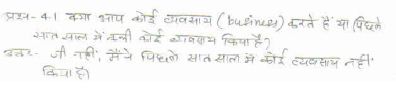 प्रश्न- 4.1 क्या आप कोई व्यवसाय (business) करते हैं या पिछले
सात साल में कभी कोई व्यवसाय किया है?
उत्तर:- जी नहीं, मैंने पिछले सात साल में कोई व्यवसाय नहीं
किया है।